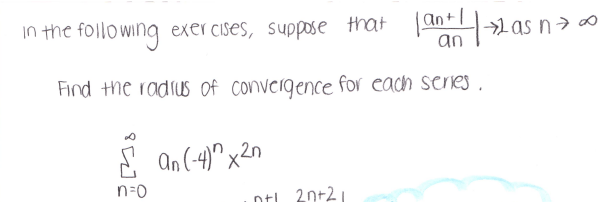 in the following exercises, suppose that |an+1/an| → 1 as n → ∞
Find the radius of convergence for each series.
∞
Σ an(-4)ⁿ x²ⁿ
n=0
n+1 2n+2